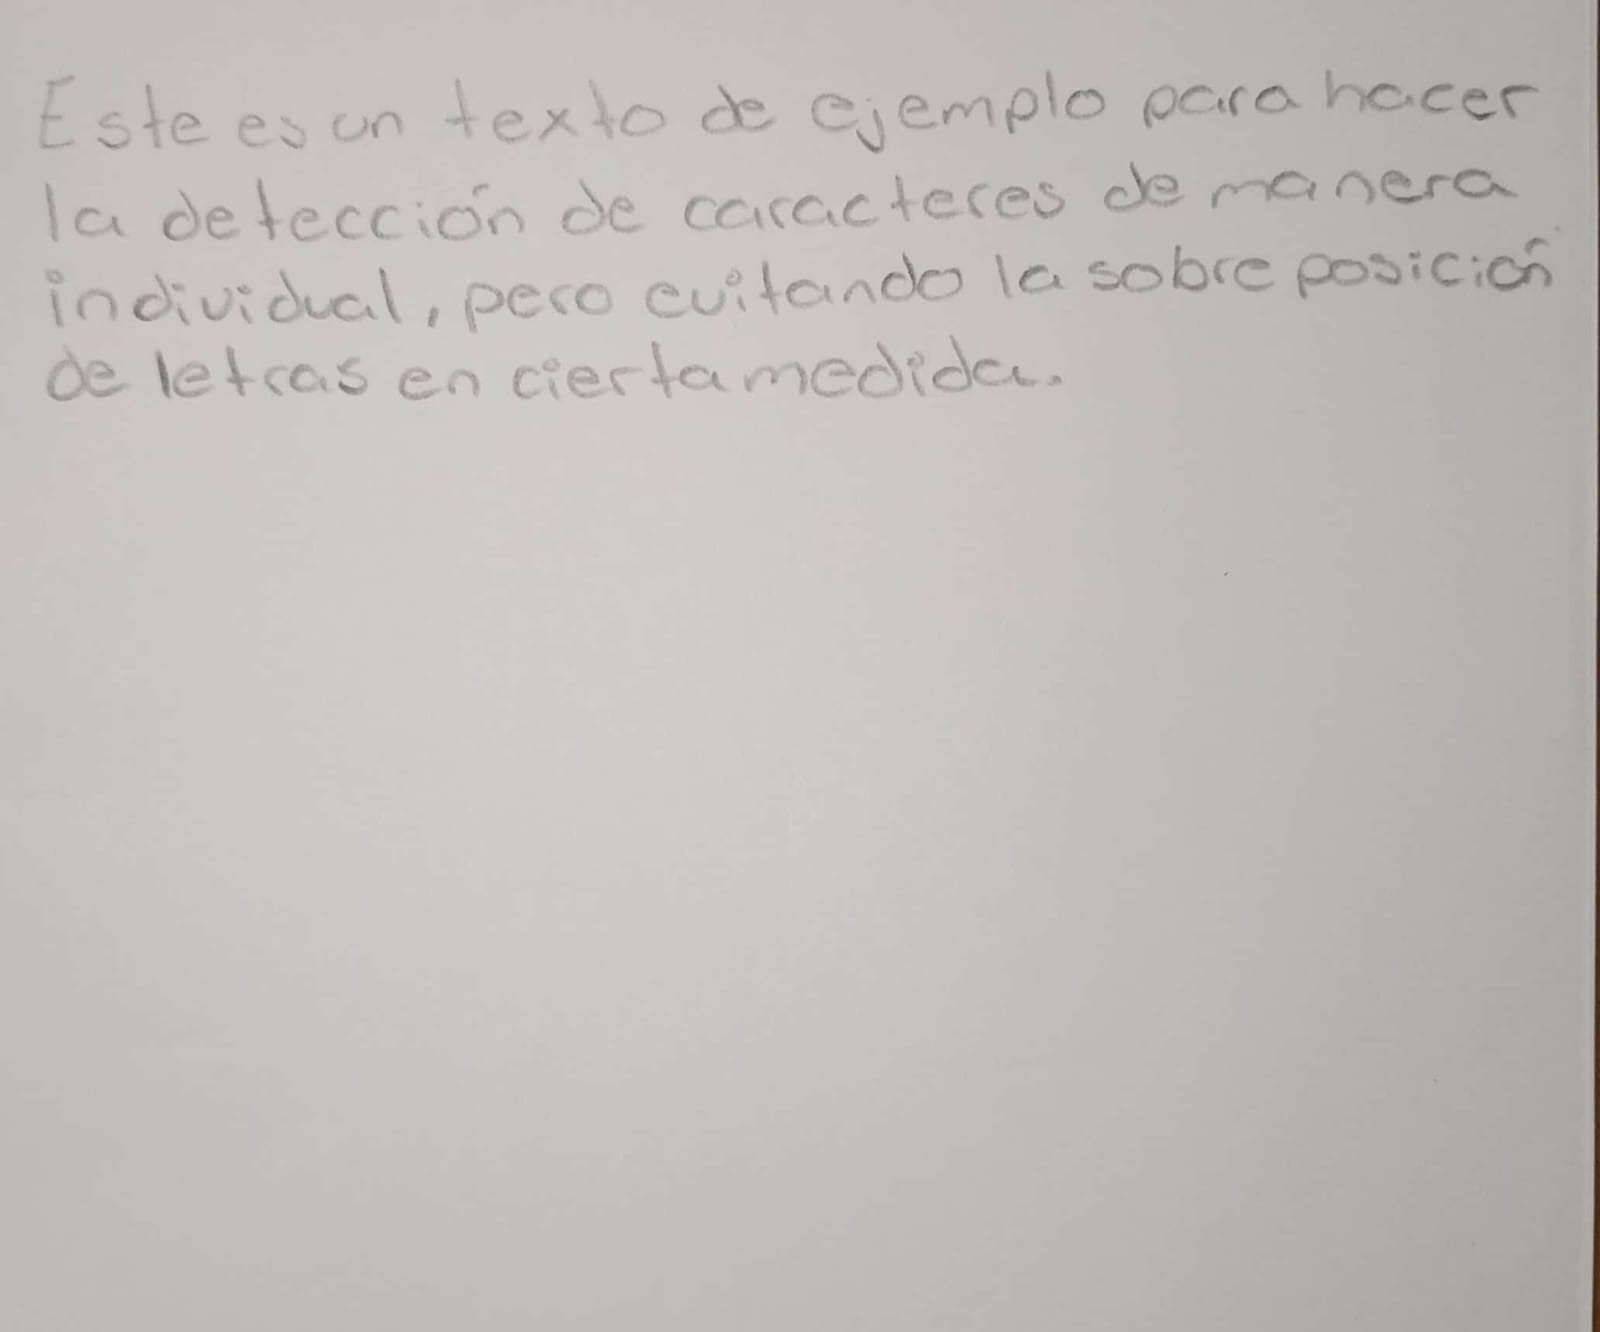 Este es un texto de ejemplo para hacer
la detección de caracteres de manera
individual, pero evitando la sobre posición
de letras en cierta medida.